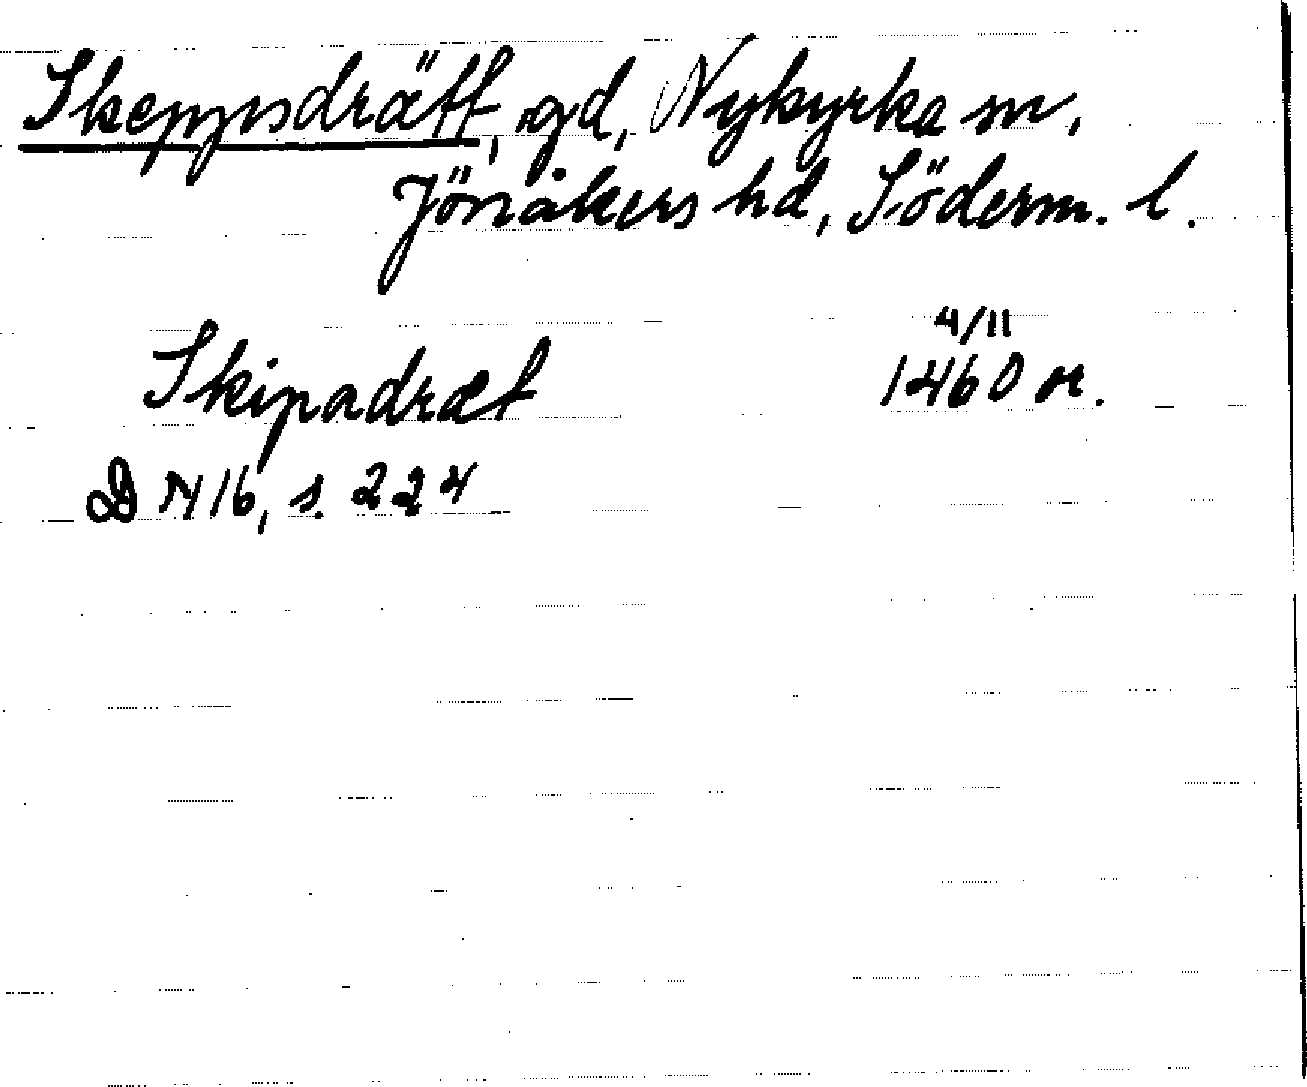 Skeppsdrätt, gd, Nykyrka sn,
Jönåkers hd, Söderm. l.
4/11
Skipadræt 1460 or.
D N 16, s. 224